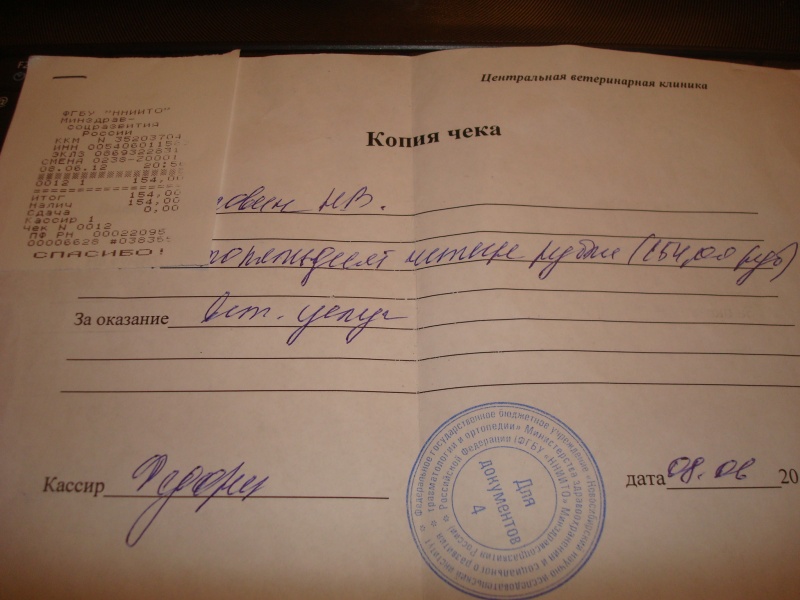 ФГБУ "ННИИТО"
Минздрав-
соцразвития
России
ККМ N 35203704
ИНН 0054060115
ЭКЛЗ 0869322831
СМЕНА 0238-20001
08.06.12 20:5
0012 1 154,00
Итог 154,00
Налич 154,00
Сдача 0,00
Кассир 1
Чек N 0012
ПФ РН 00022095
00006628 #03836
СПАСИБО!
Центральная ветеринарная клиника
Копия чека
Н.В.
четыре рубля (154,00 руб)
За оказание вет. услуг
Кассир
дата 08.06 20
Федеральное государственное бюджетное учреждение «Новосибирский научно-исследовательский институт
травматологии и ортопедии» Министерства здравоохранения и социального развития
Российской Федерации (ФГБУ «ННИИТО» Минздравсоцразвития России)
Для
документов
4